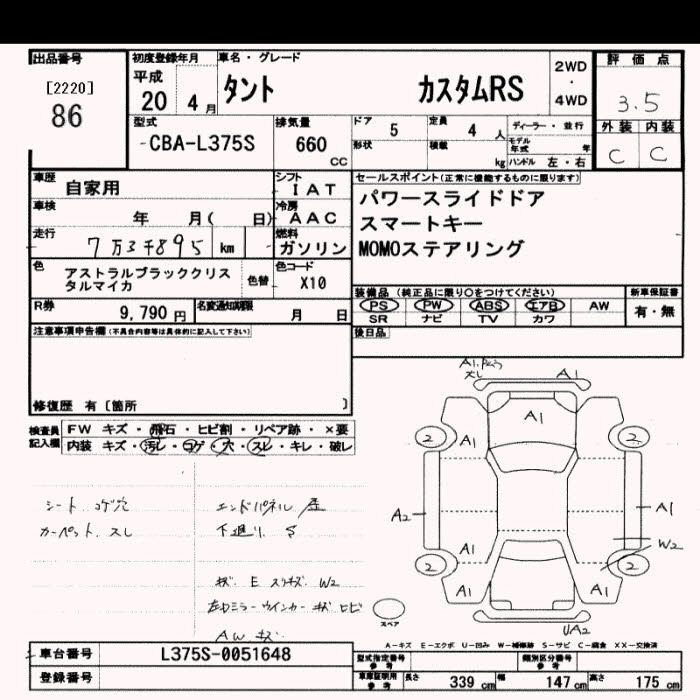 出品番号 初度登録年月 車名・グレード 2WD・4WD 評価点
[2220] 86 平成 20 4月 タント カスタムRS 3.5
型式 排気量 ドア 5 定員 4人 ディーラー・並行 外装 内装
-CBA-L375S 660 CC 形状 積載 kg モデル年式 年 ハンドル 左・右 C C
車歴 自家用 シフト IAT セールスポイント(正常に機能するものに限ります)
車検 年 月( 日) 冷房 AAC パワースライドドア
スマートキー
走行 7万3千895 km 燃料 ガソリン MOMOステアリング
色 アストラルブラッククリスタルマイカ 色替 色コード X10
装備品 (純正品に限り○をつけてください) 新車保証書
PS PW ABS エアB AW 有・無
R券 9,790円 名変通知期限 月 日 SR ナビ TV カワ
注意事項申告欄(不具合内容等は具体的に記入して下さい) 後日品
修復歴 有[箇所 ]
検査員記入欄 FW キズ・飛石・ヒビ割・リペア跡・×要
内装 キズ・汚レ・コゲ・穴・スレ・キレ・破レ
A1 A1
A1
2 A1 2
A2 A1
A1 W2
2 2
A1 A1
UA2
シート コゲ穴 エンドパネル
カーペット スレ 下廻り S
E W2
左ドミラーウインカー キズ ヒビ
AW キズ
スペア
A-キズ E-エクボ U-凹み W-補修跡 S-サビ C-腐食 XX-交換済
車台番号 L375S-0051648 型式指定番号 参考 類別区分番号 参考
登録番号 車庫証明用 参考 長さ 339cm 幅 147cm 高さ 175cm